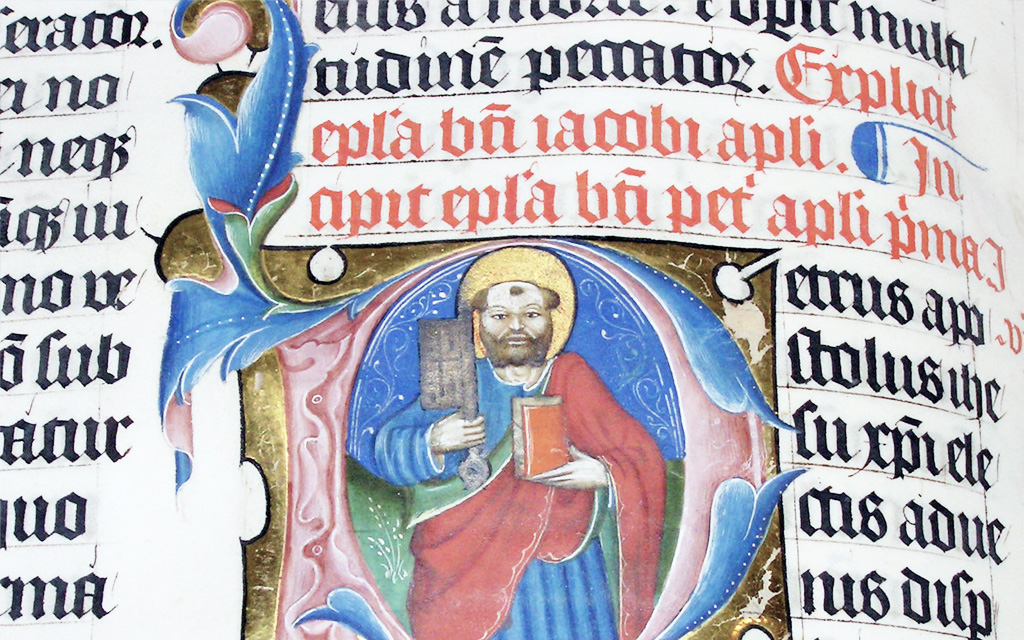 serator.
ei no
neqȝ
iqȝ in
mo ve
ō sub
atur
quo
rma
eius a morte. ⁊ opit multi
tudinē peccator. Explicit
epl'a bt̄i iacobi apli. In
cipit epl'a bt̄i pet' apli p̍ma J
etrus apo
stolus ihe
su xp̄i ele
ctis adue
nis disp